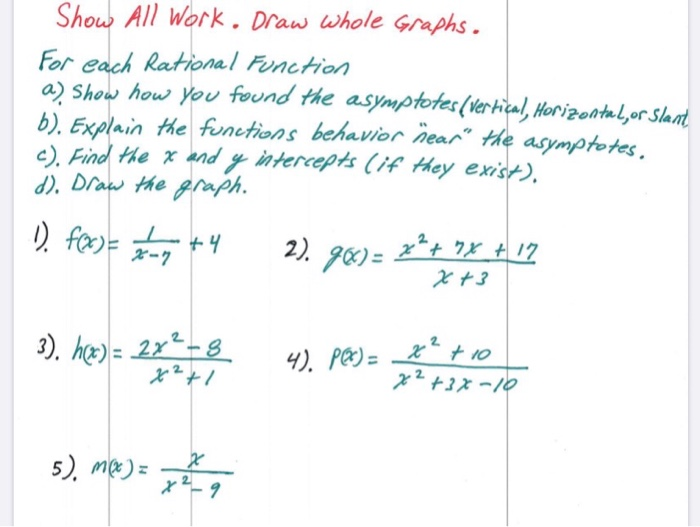 Show All Work. Draw whole Graphs.
For each Rational Function
a) Show how you found the asymptotes (Vertical, Horizontal, or Slant
b). Explain the functions behavior "near" the asymptotes.
c). Find the x and y intercepts (if they exist).
d). Draw the graph.
1). f(x) = 1/(x-7) + 4
2). g(x) = (x² + 7x + 17)/(x + 3)
3). h(x) = (2x² - 8)/(x² + 1)
4). P(x) = (x² + 10)/(x² + 3x - 10)
5). m(x) = x/(x² - 9)